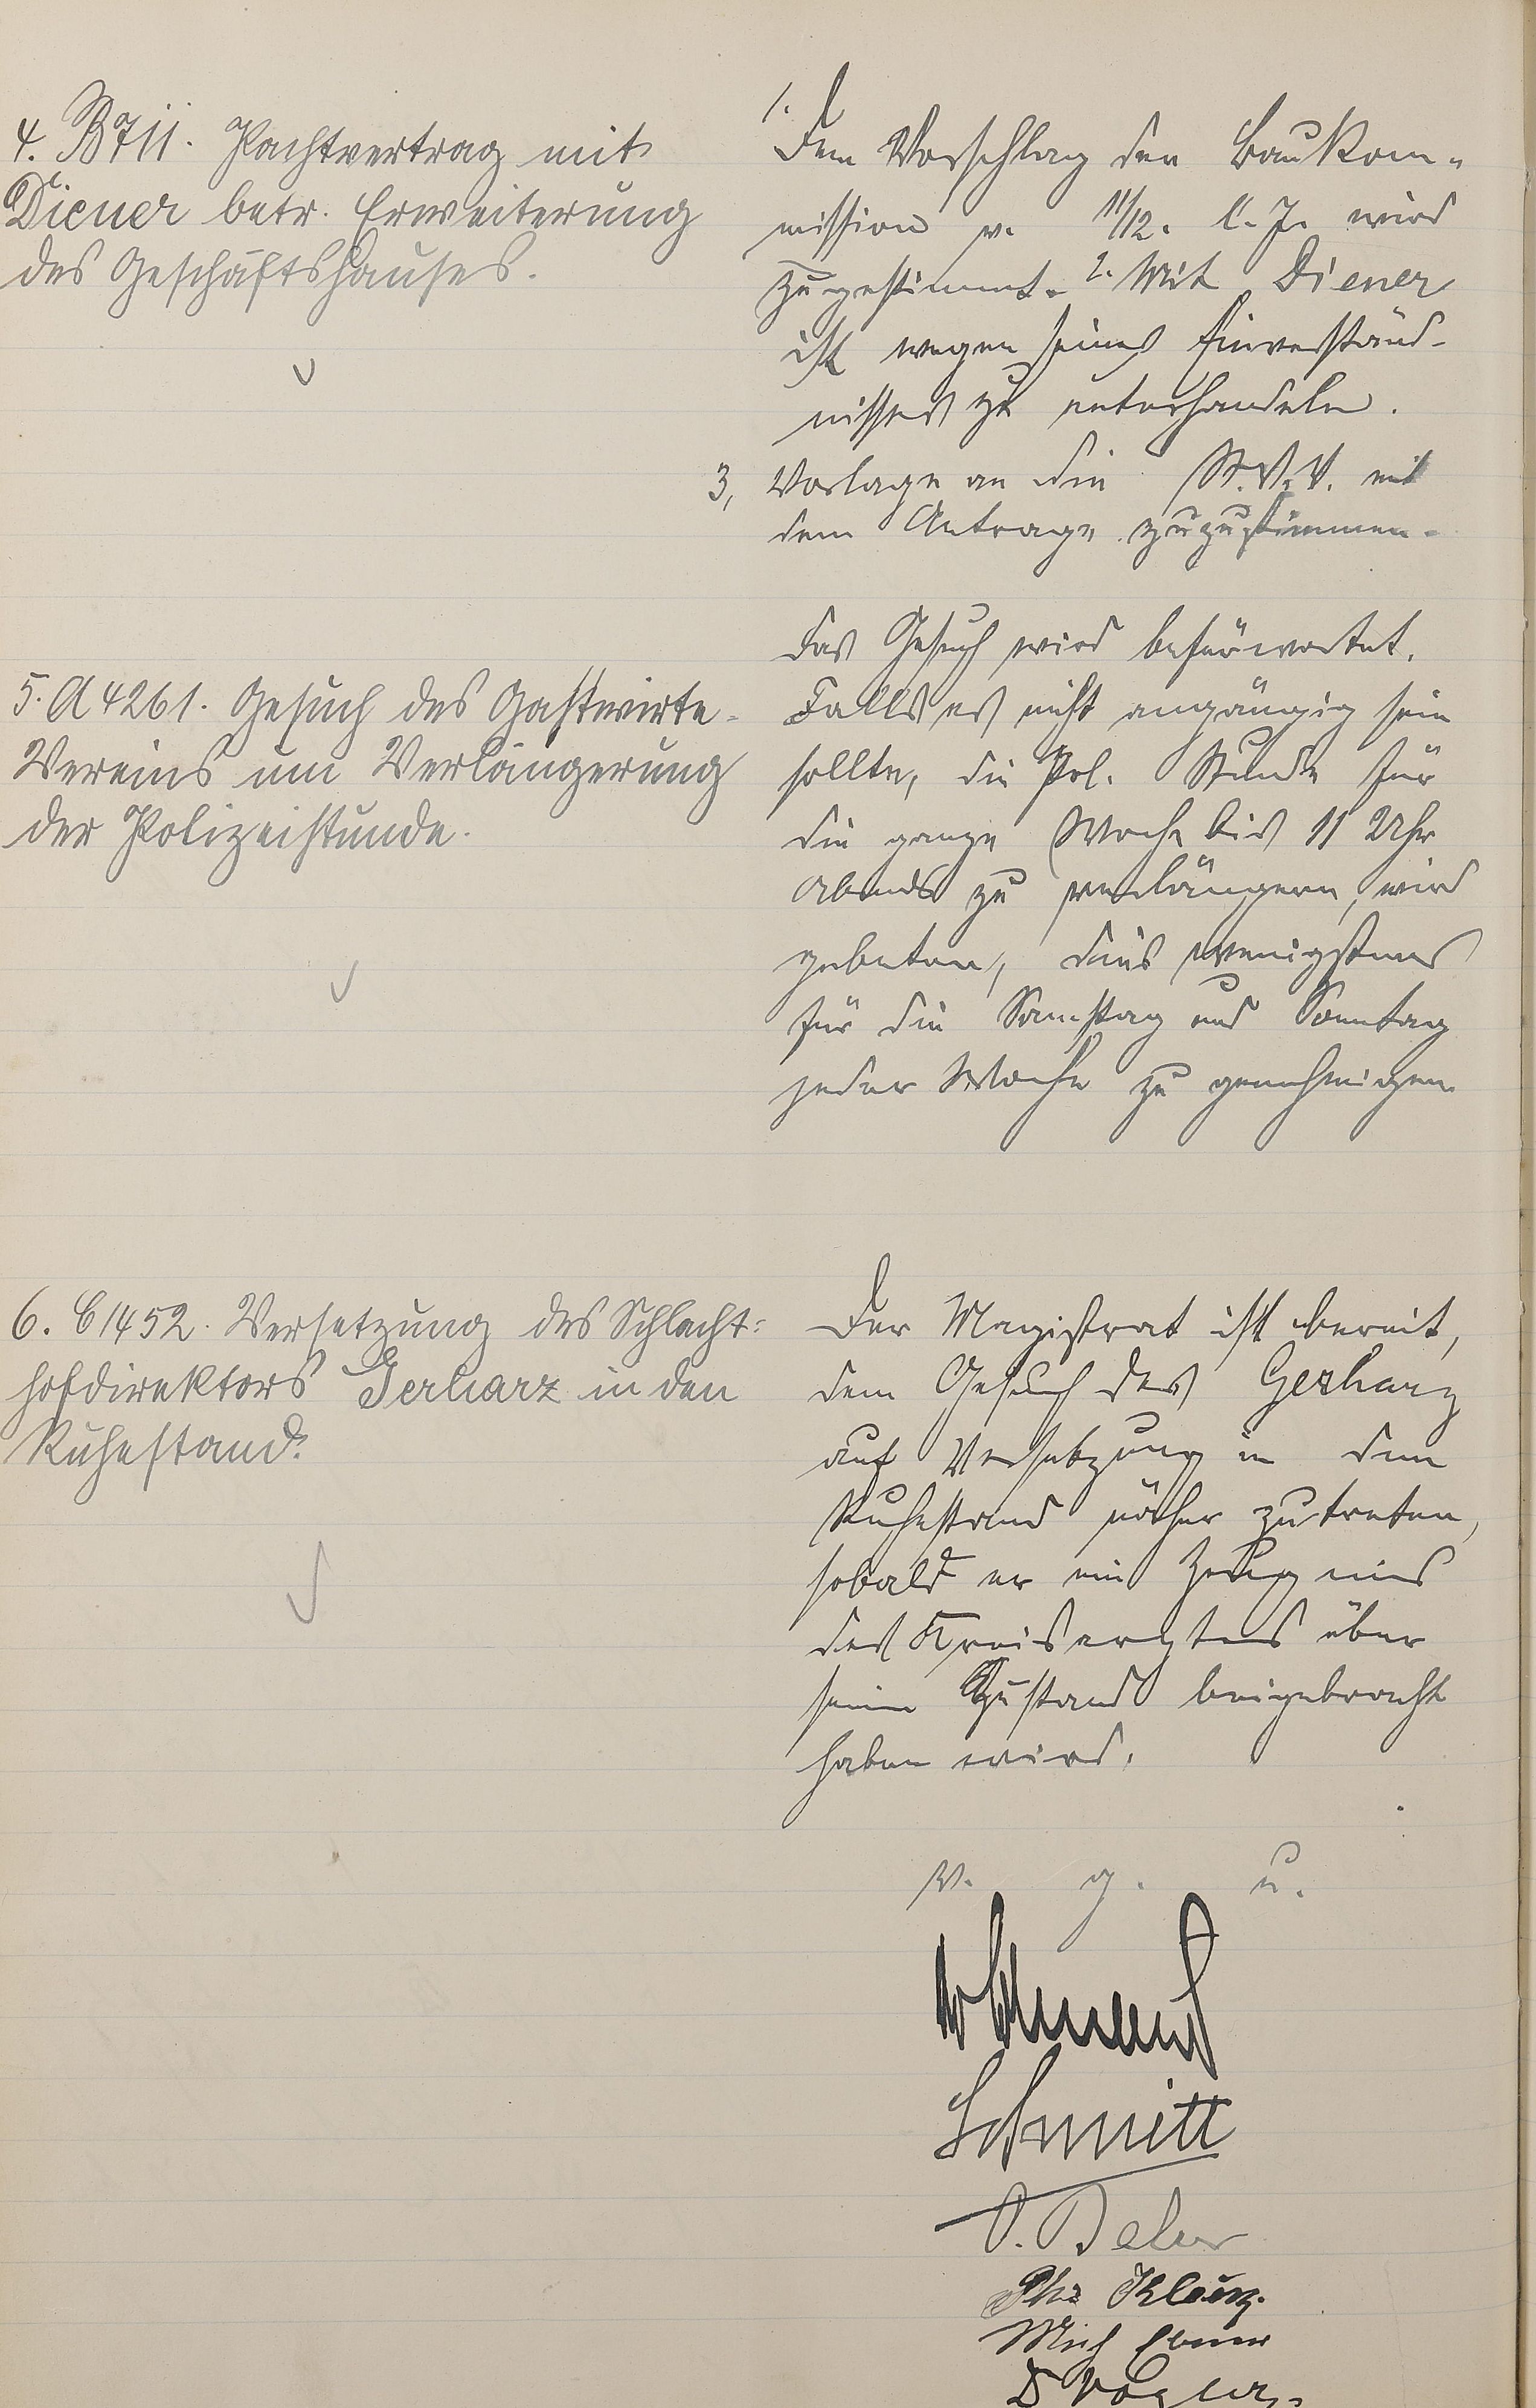 4. B711. Pachtvertrag mit
Diener betr. Erweiterung
des Geschäftshauses.
1. Dem Vorschlag der Baukom-
mission v. 11/12. l. J. wird
zugestimmt. 2. Mit Diener
ist wegen seines Einverständ-
nisses zu unterhandeln.
3, Vorlage an die St.V.V. mit
dem Antrage zuzustimmen.
5. A 4261. Gesuch des Gastwirte-
Vereins um Verlängerung
der Polizeistunde.
Das Gesuch wird befürwortet.
Falls es nicht angängig sein
sollte, die Pol. Stunde für
die ganze Woche bis 11 Uhr
Abends zu verlängern, wird
gebeten, dies wenigstens
für die Samstag und Sonntag
jeder Woche zu genehmigen
6. C 1452. Versetzung des Schlacht-
hofdirektors Gerharz in den
Ruhestand.
Der Magistrat ist bereit,
dem Gesuch des Gerharz
auf Versetzung in den
Ruhestand näher zutreten,
sobald er ein Zeugnis
des Kreisarztes über
seinen Zustand beigebracht
haben wird.
v. g. u.
Schmitt